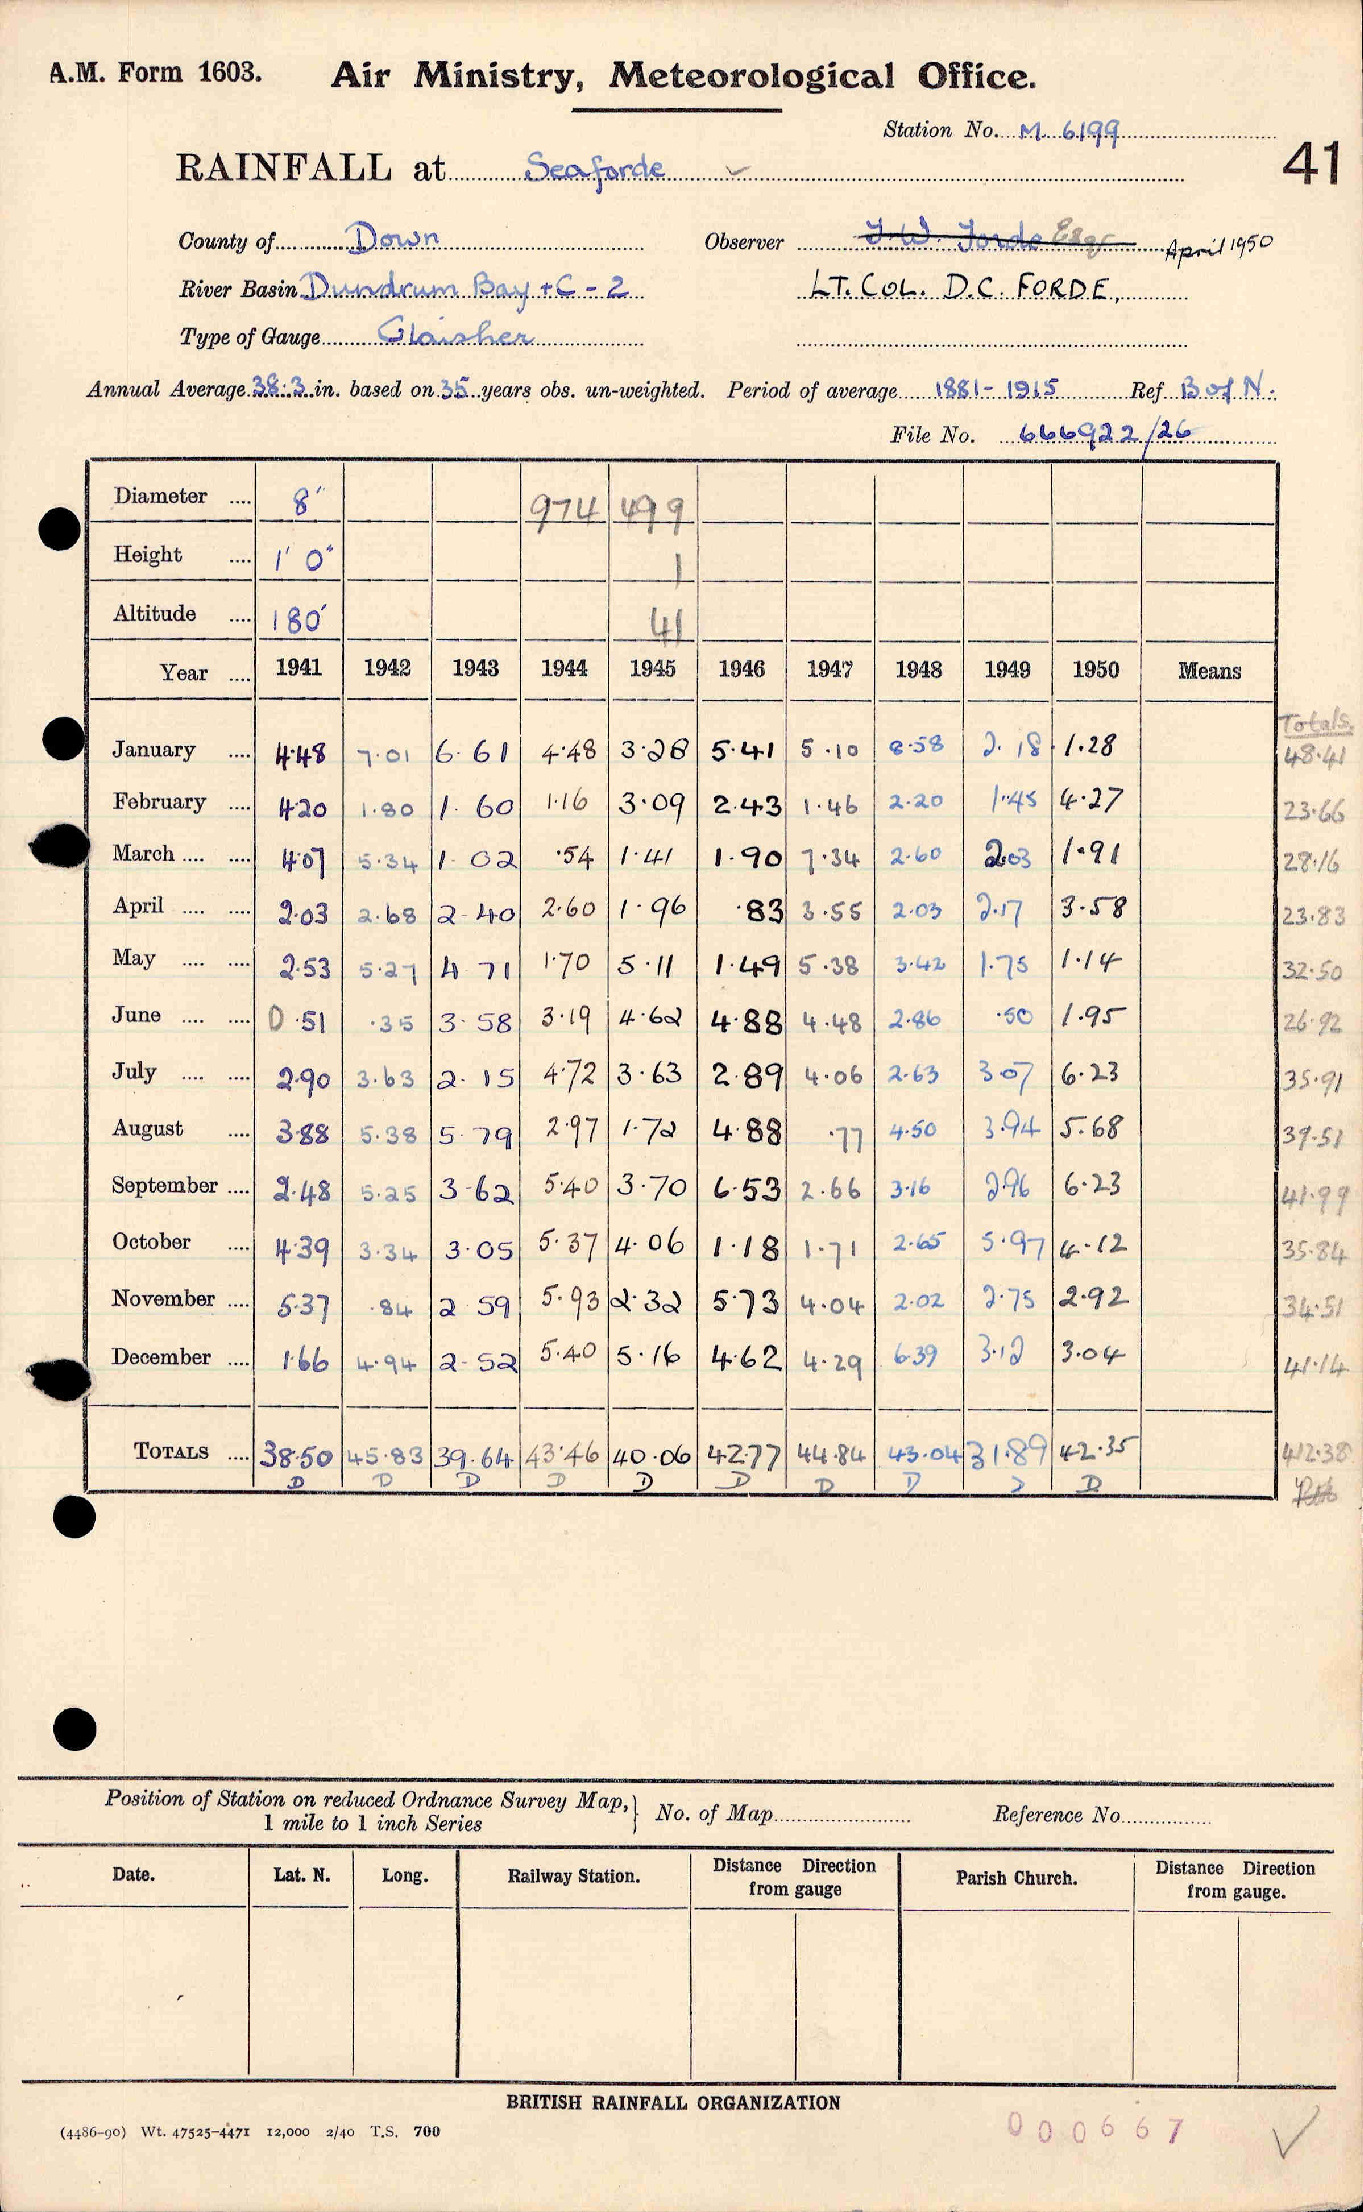 A.M. Form 1603. Air Ministry, Meteorological Office.
Station No. M. 6199
41
RAINFALL at Seaforde ✓
County of Down Observer J.W. Forde Esqr April 1950
River Basin Dundrum Bay + C - 2 LT. COL. D.C. FORDE,
Type of Gauge Glaisher
Annual Average 38.3 in. based on 35 years obs. un-weighted. Period of average 1881-1915 Ref B of N.
File No. 666922/26
Diameter .... 8" 974 499
Height .... 1' 0" 1
Altitude .... 180' 41
Year .... 1941 1942 1943 1944 1945 1946 1947 1948 1949 1950 Means
Totals.
January .... 4.48 7.01 6.61 4.48 3.28 5.41 5.10 8.58 2.18 1.28 48.41
February .... 4.20 1.80 1.60 1.16 3.09 2.43 1.46 2.20 1.45 4.27 23.66
March .... .... 4.07 5.34 1.02 .54 1.41 1.90 7.34 2.60 2.03 1.91 28.16
April .... .... 2.03 2.68 2.40 2.60 1.96 .83 3.55 2.03 2.17 3.58 23.83
May .... .... 2.53 5.27 4.71 1.70 5.11 1.49 5.38 3.42 1.75 1.14 32.50
June .... .... 0.51 .35 3.58 3.19 4.62 4.88 4.48 2.86 .50 1.95 26.92
July .... .... 2.90 3.63 2.15 4.72 3.63 2.89 4.06 2.63 3.07 6.23 35.91
August .... 3.88 5.38 5.79 2.97 1.72 4.88 .77 4.50 3.94 5.68 39.51
September .... 2.48 5.25 3.62 5.40 3.70 6.53 2.66 3.16 2.96 6.23 41.99
October .... 4.39 3.34 3.05 5.37 4.06 1.18 1.71 2.65 5.97 4.12 35.84
November .... 5.37 .84 2.59 5.93 2.32 5.73 4.04 2.02 2.75 2.92 34.51
December .... 1.66 4.94 2.52 5.40 5.16 4.62 4.29 6.39 3.12 3.04 41.14
TOTALS .... 38.50 45.83 39.64 43.46 40.06 42.77 44.84 43.04 31.89 42.35 412.38
D D D D D D D D D D
Position of Station on reduced Ordnance Survey Map, 1 mile to 1 inch Series } No. of Map Reference No.
Date. Lat. N. Long. Railway Station. Distance Direction from gauge Parish Church. Distance Direction from gauge.
BRITISH RAINFALL ORGANIZATION
(4486-90) Wt. 47525-4471 12,000 2/40 T.S. 700
000667 ✓